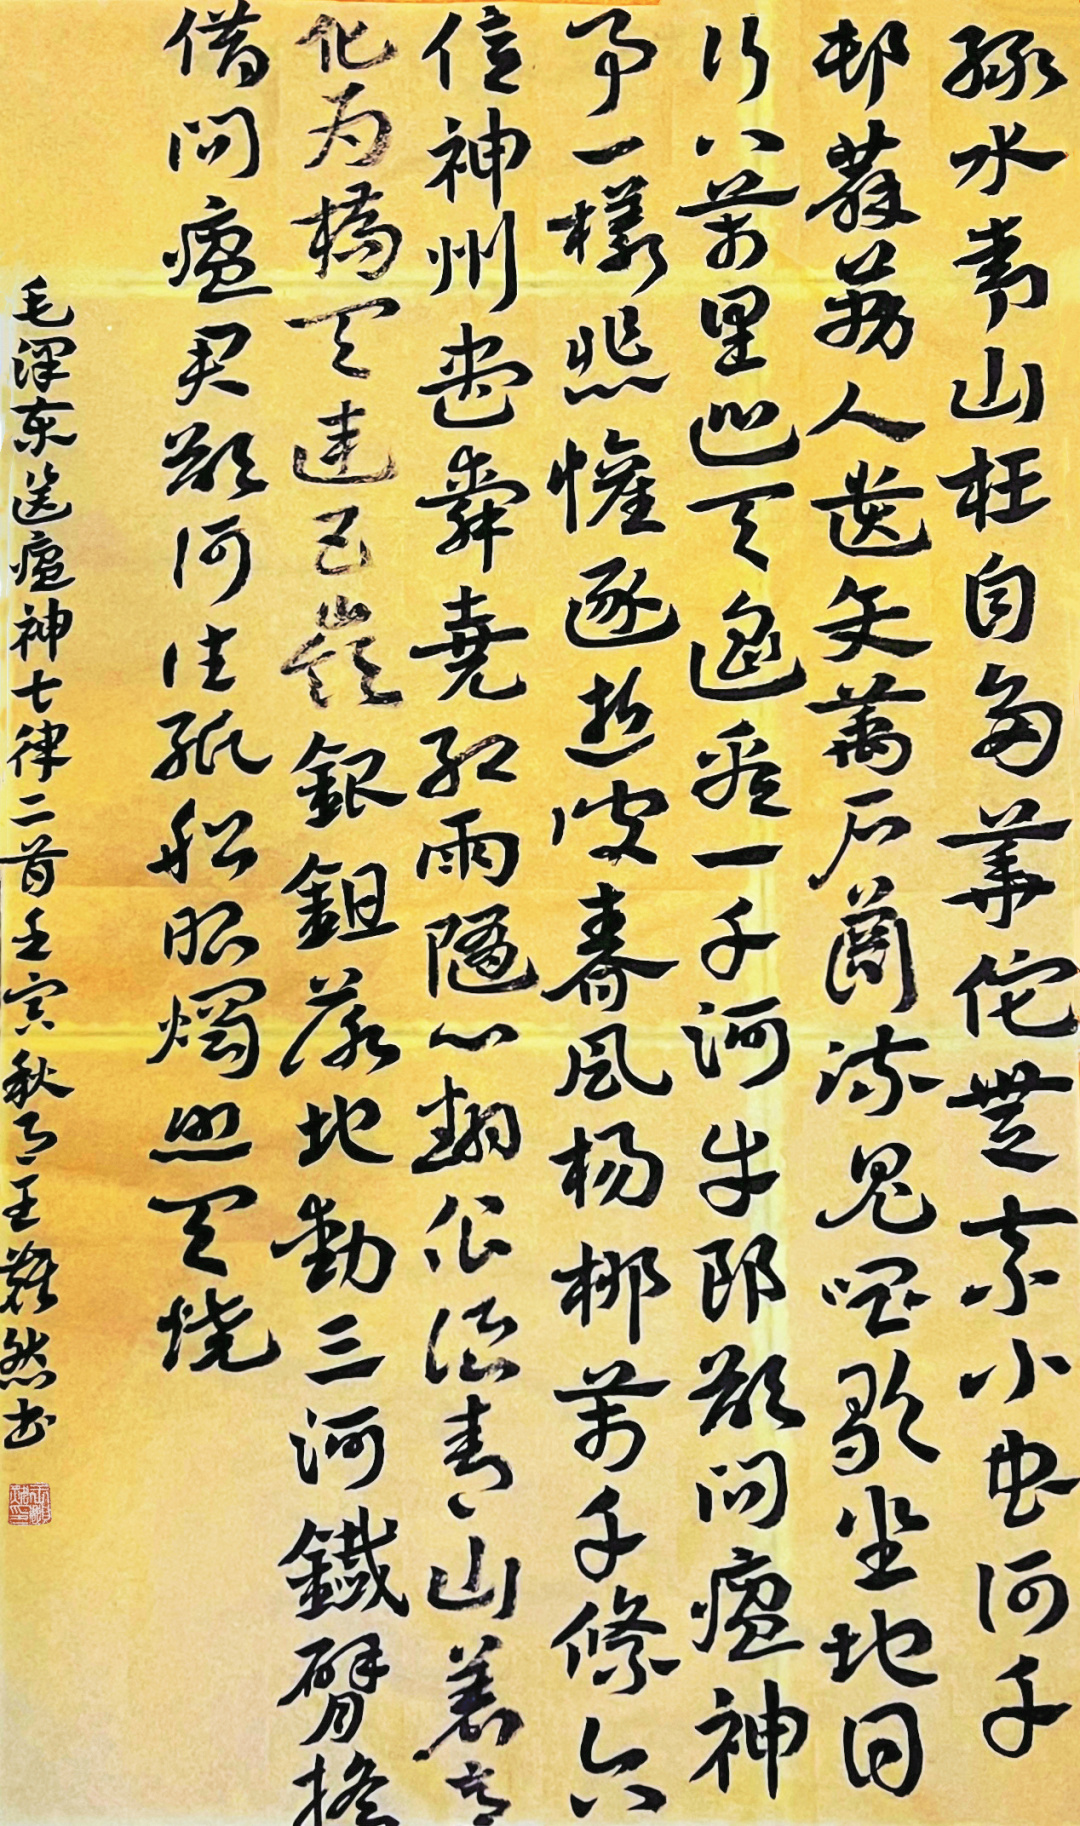 绿水青山枉自多華佗無奈小虫何千
邨薜荔人遺矢萬户蕭疏鬼唱歌坐地日
行八万里巡天遥看一千河牛郎欲问瘟神
事一樣悲懽逐逝波春风杨柳万千條六
億神州尽舜堯红雨随心翻作浪青山著意
化为橋天連五嶺銀鋤落地動三河鐵臂搖
借问瘟君欲何往紙船明燭照天烧
毛泽东送瘟神七律二首壬寅秋月王
然书